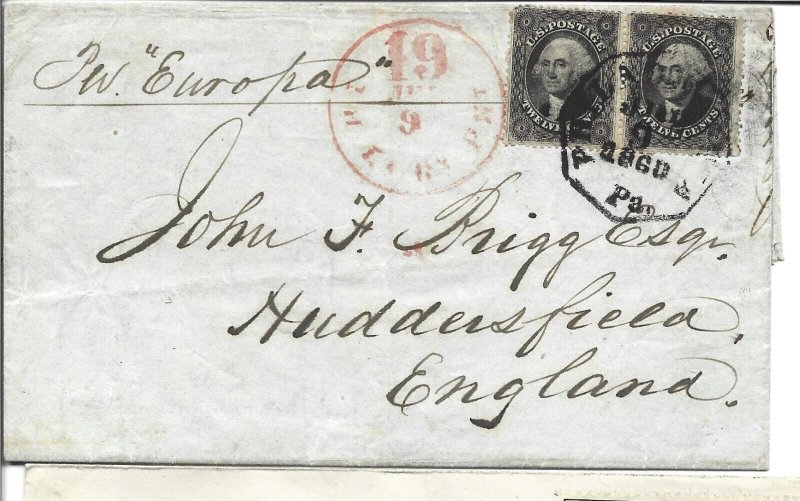 Per. "Europa"
19
9
U.S. POSTAGE
TWELVE CENTS
U.S. POSTAGE
TWELVE CENTS
1860
Pa.
John F. Brigg Esqr.
Huddersfield,
England.